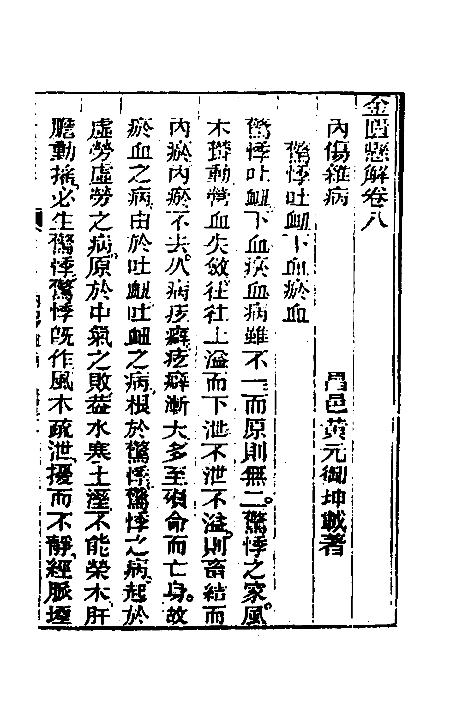 金匱懸解卷八
內傷雜病
昌邑黃元御坤載著
驚悸吐衄下血瘀血
驚悸吐衄下血瘀血病雖不一而原則無二。驚悸之家風
木搖動營血失斂往往上溢而下泄不泄不溢則畜結而
內瘀內瘀不去久病痃癖痃癖漸大多至殞命而亡身。故
瘀血之病由於吐衄吐衄之病根於驚悸驚悸之病起於
虛勞虛勞之病原於中氣之敗葢水寒土溼不能榮木肝
膽動搖必生驚悸驚悸旣作風木疏泄擾而不靜經脈堙